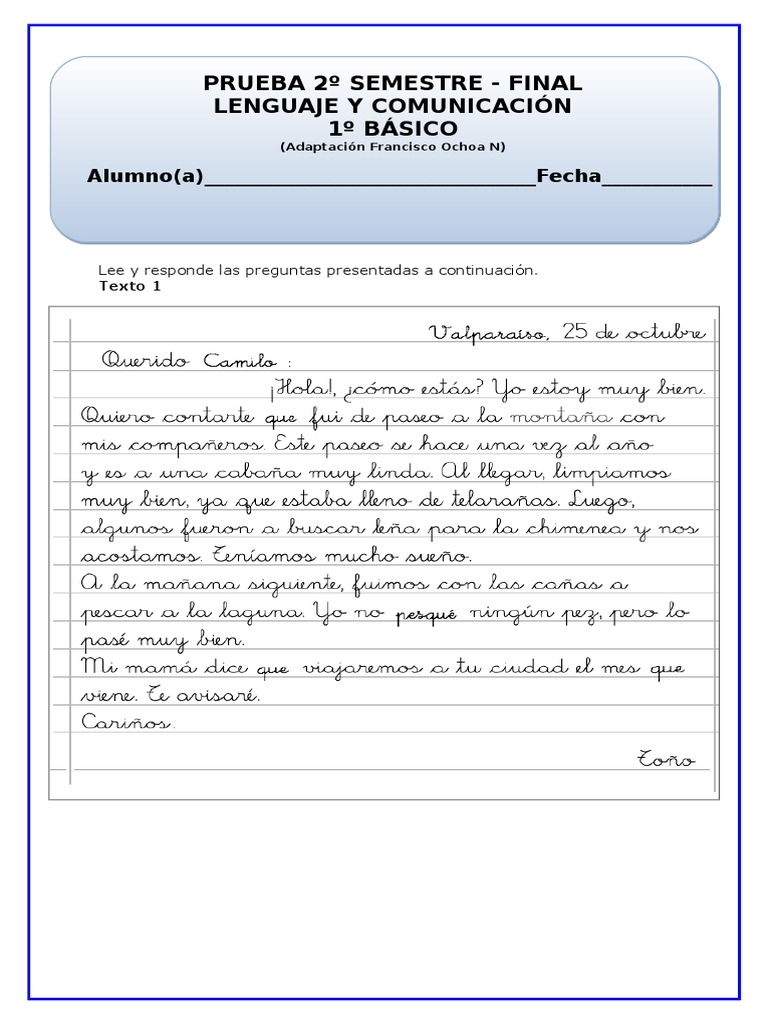 PRUEBA 2º SEMESTRE - FINAL
LENGUAJE Y COMUNICACIÓN
1º BÁSICO
(Adaptación Francisco Ochoa N)
Alumno(a)______________________________Fecha__________
Lee y responde las preguntas presentadas a continuación.
Texto 1
Valparaíso, 25 de octubre
Querido Camilo :
¡Hola!, ¿cómo estás? Yo estoy muy bien.
Quiero contarte que fui de paseo a la montaña con
mis compañeros. Este paseo se hace una vez al año
y es a una cabaña muy linda. Al llegar, limpiamos
muy bien, ya que estaba lleno de telarañas. Luego,
algunos fueron a buscar leña para la chimenea y nos
acostamos. Teníamos mucho sueño.
A la mañana siguiente, fuimos con las cañas a
pescar a la laguna. Yo no pesqué ningún pez, pero lo
pasé muy bien.
Mi mamá dice que viajaremos a tu ciudad el mes que
viene. Te avisaré.
Cariños.
Toño